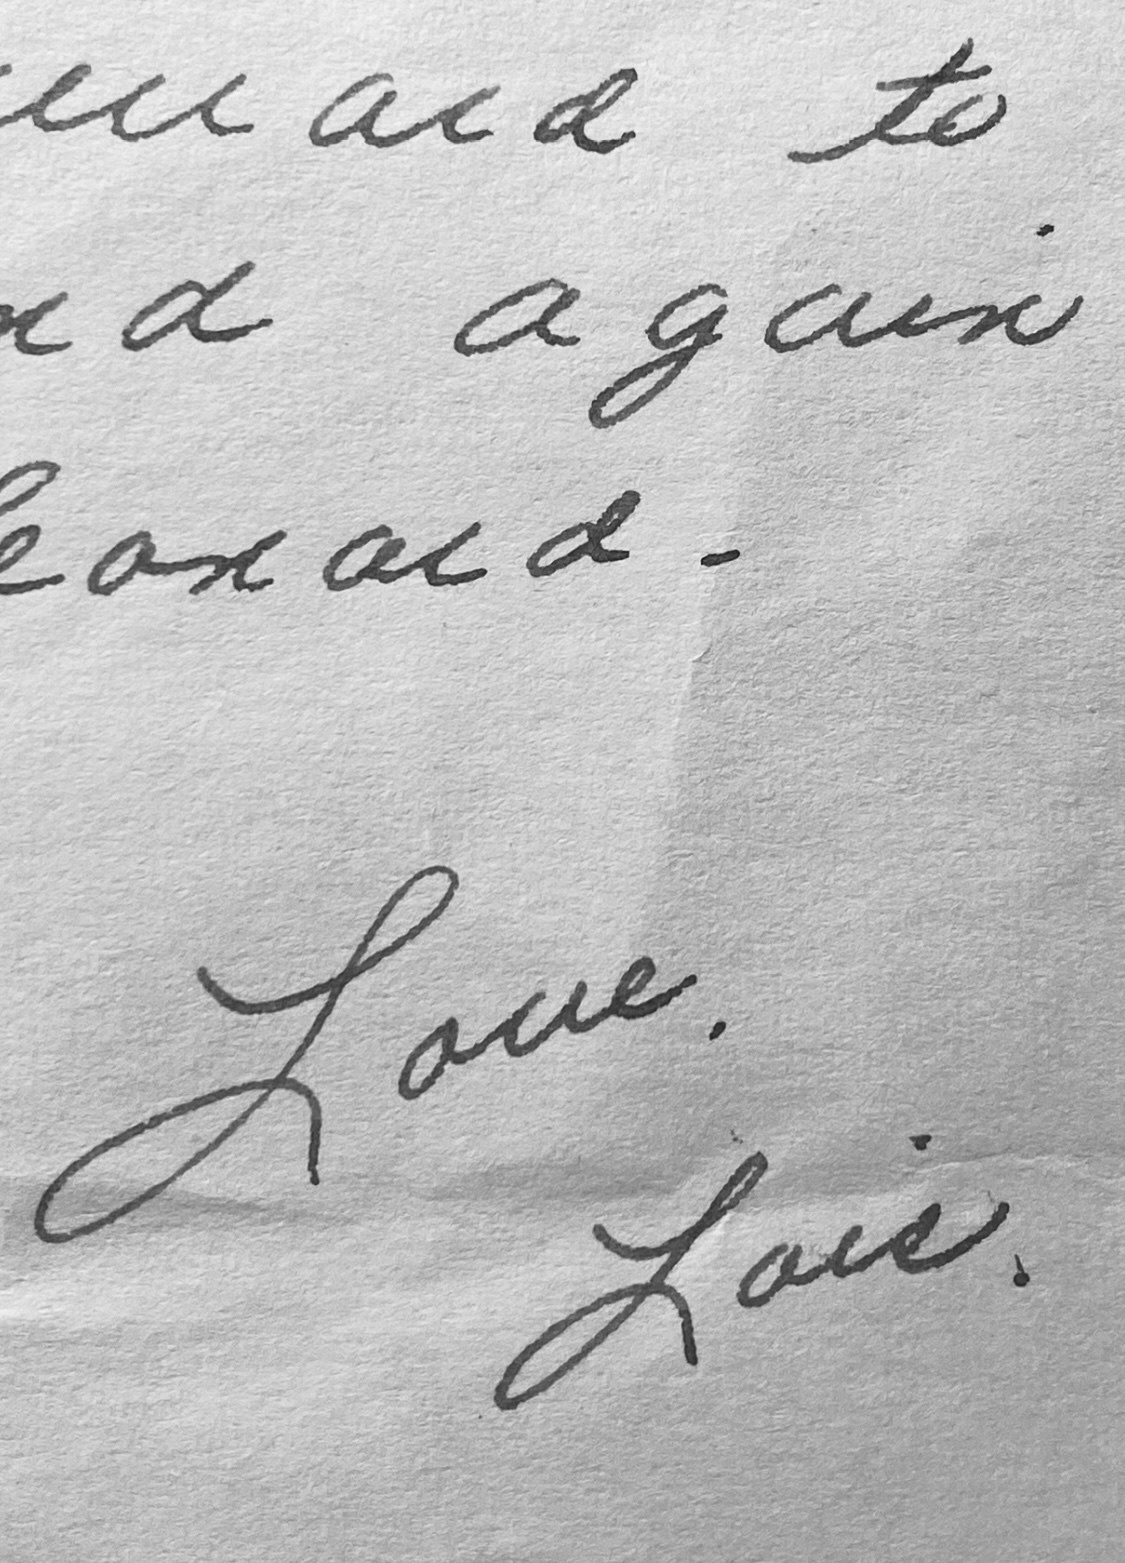 ward to
nd again
Leonard.
Love,
Lois.